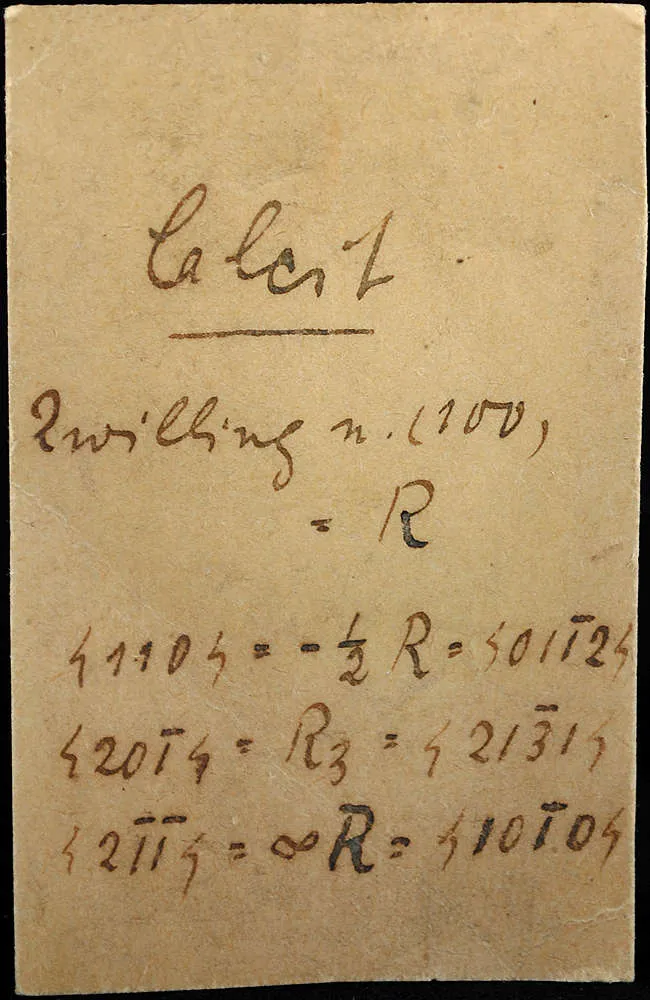 Calcit
Zwilling n. (100)
= R
{110} = -½ R = {011̄2}
{201̄} = R3 = {213̄1}
{21̄1̄} = ∞R = {101̄0}